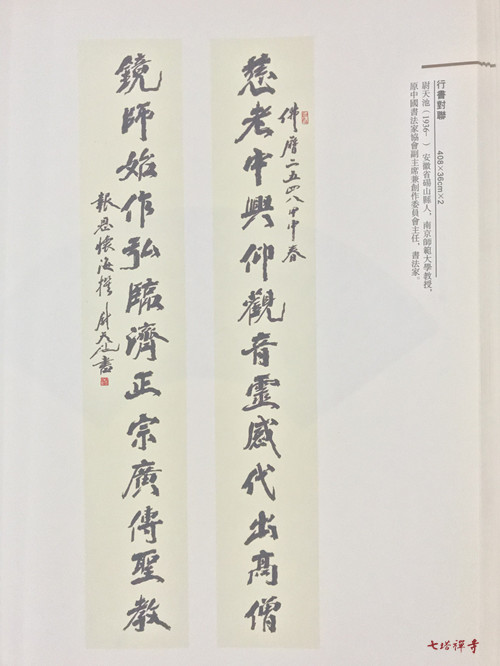 行書對聯 408×36cm×2
尉天池（1936- ） 安徽省碭山縣人，南京師範大學教授，
原中國書法家協會副主席兼創作委員會主任，書法家。
慈老中興仰觀音靈感代出高僧
佛曆二五四八甲申春
鏡師始作弘臨濟正宗廣傳聖教
報恩懷海撰 尉天池書
七塔禪寺